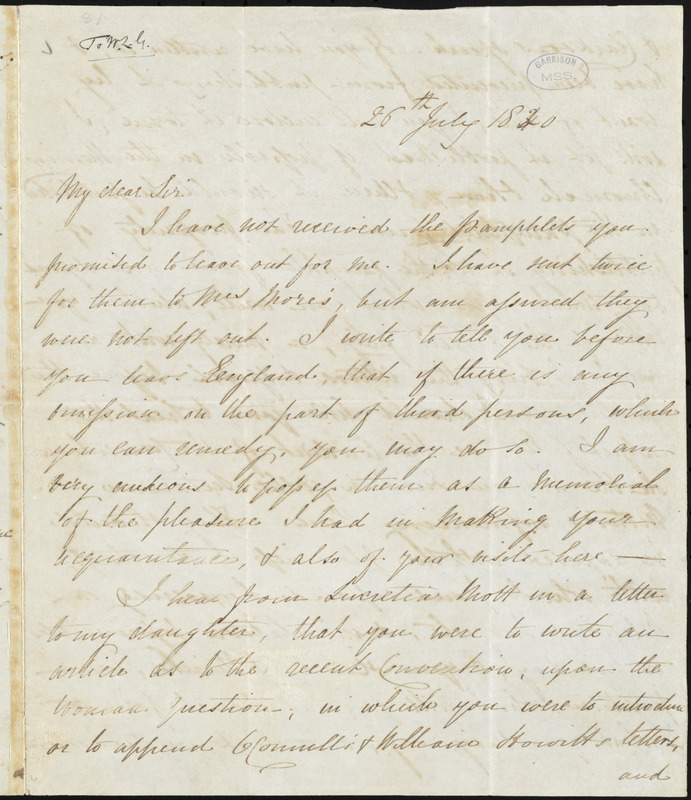 81
To W.L.G.
GARRISON
MSS.
26th July 1840
My dear Sir
I have not received the pamphlets you
promised to leave out for me. I have sent twice
for them to Mrs More's, but am assured they
were not left out. I write to tell you before
you leave England that if there is any
omission on the part of third persons, which
you can remedy, you may do so. I am
very anxious to possess them as a memorial
of the pleasure I had in making your
acquaintance, & also of your visits here —
I hear from Lucretia Mott in a letter
to my daughter, that you were to write an
article as to the recent Convention, upon the
Woman question, in which you were to introduce
or to append O'Connell's & William Howitts letters,
and